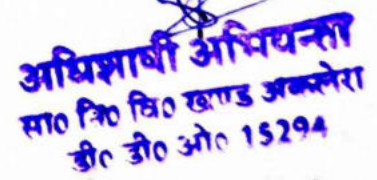 अधिशाषी अभियन्ता
सा० नि० वि० खण्ड अकलेरा
डी० डी० ओ० 15294